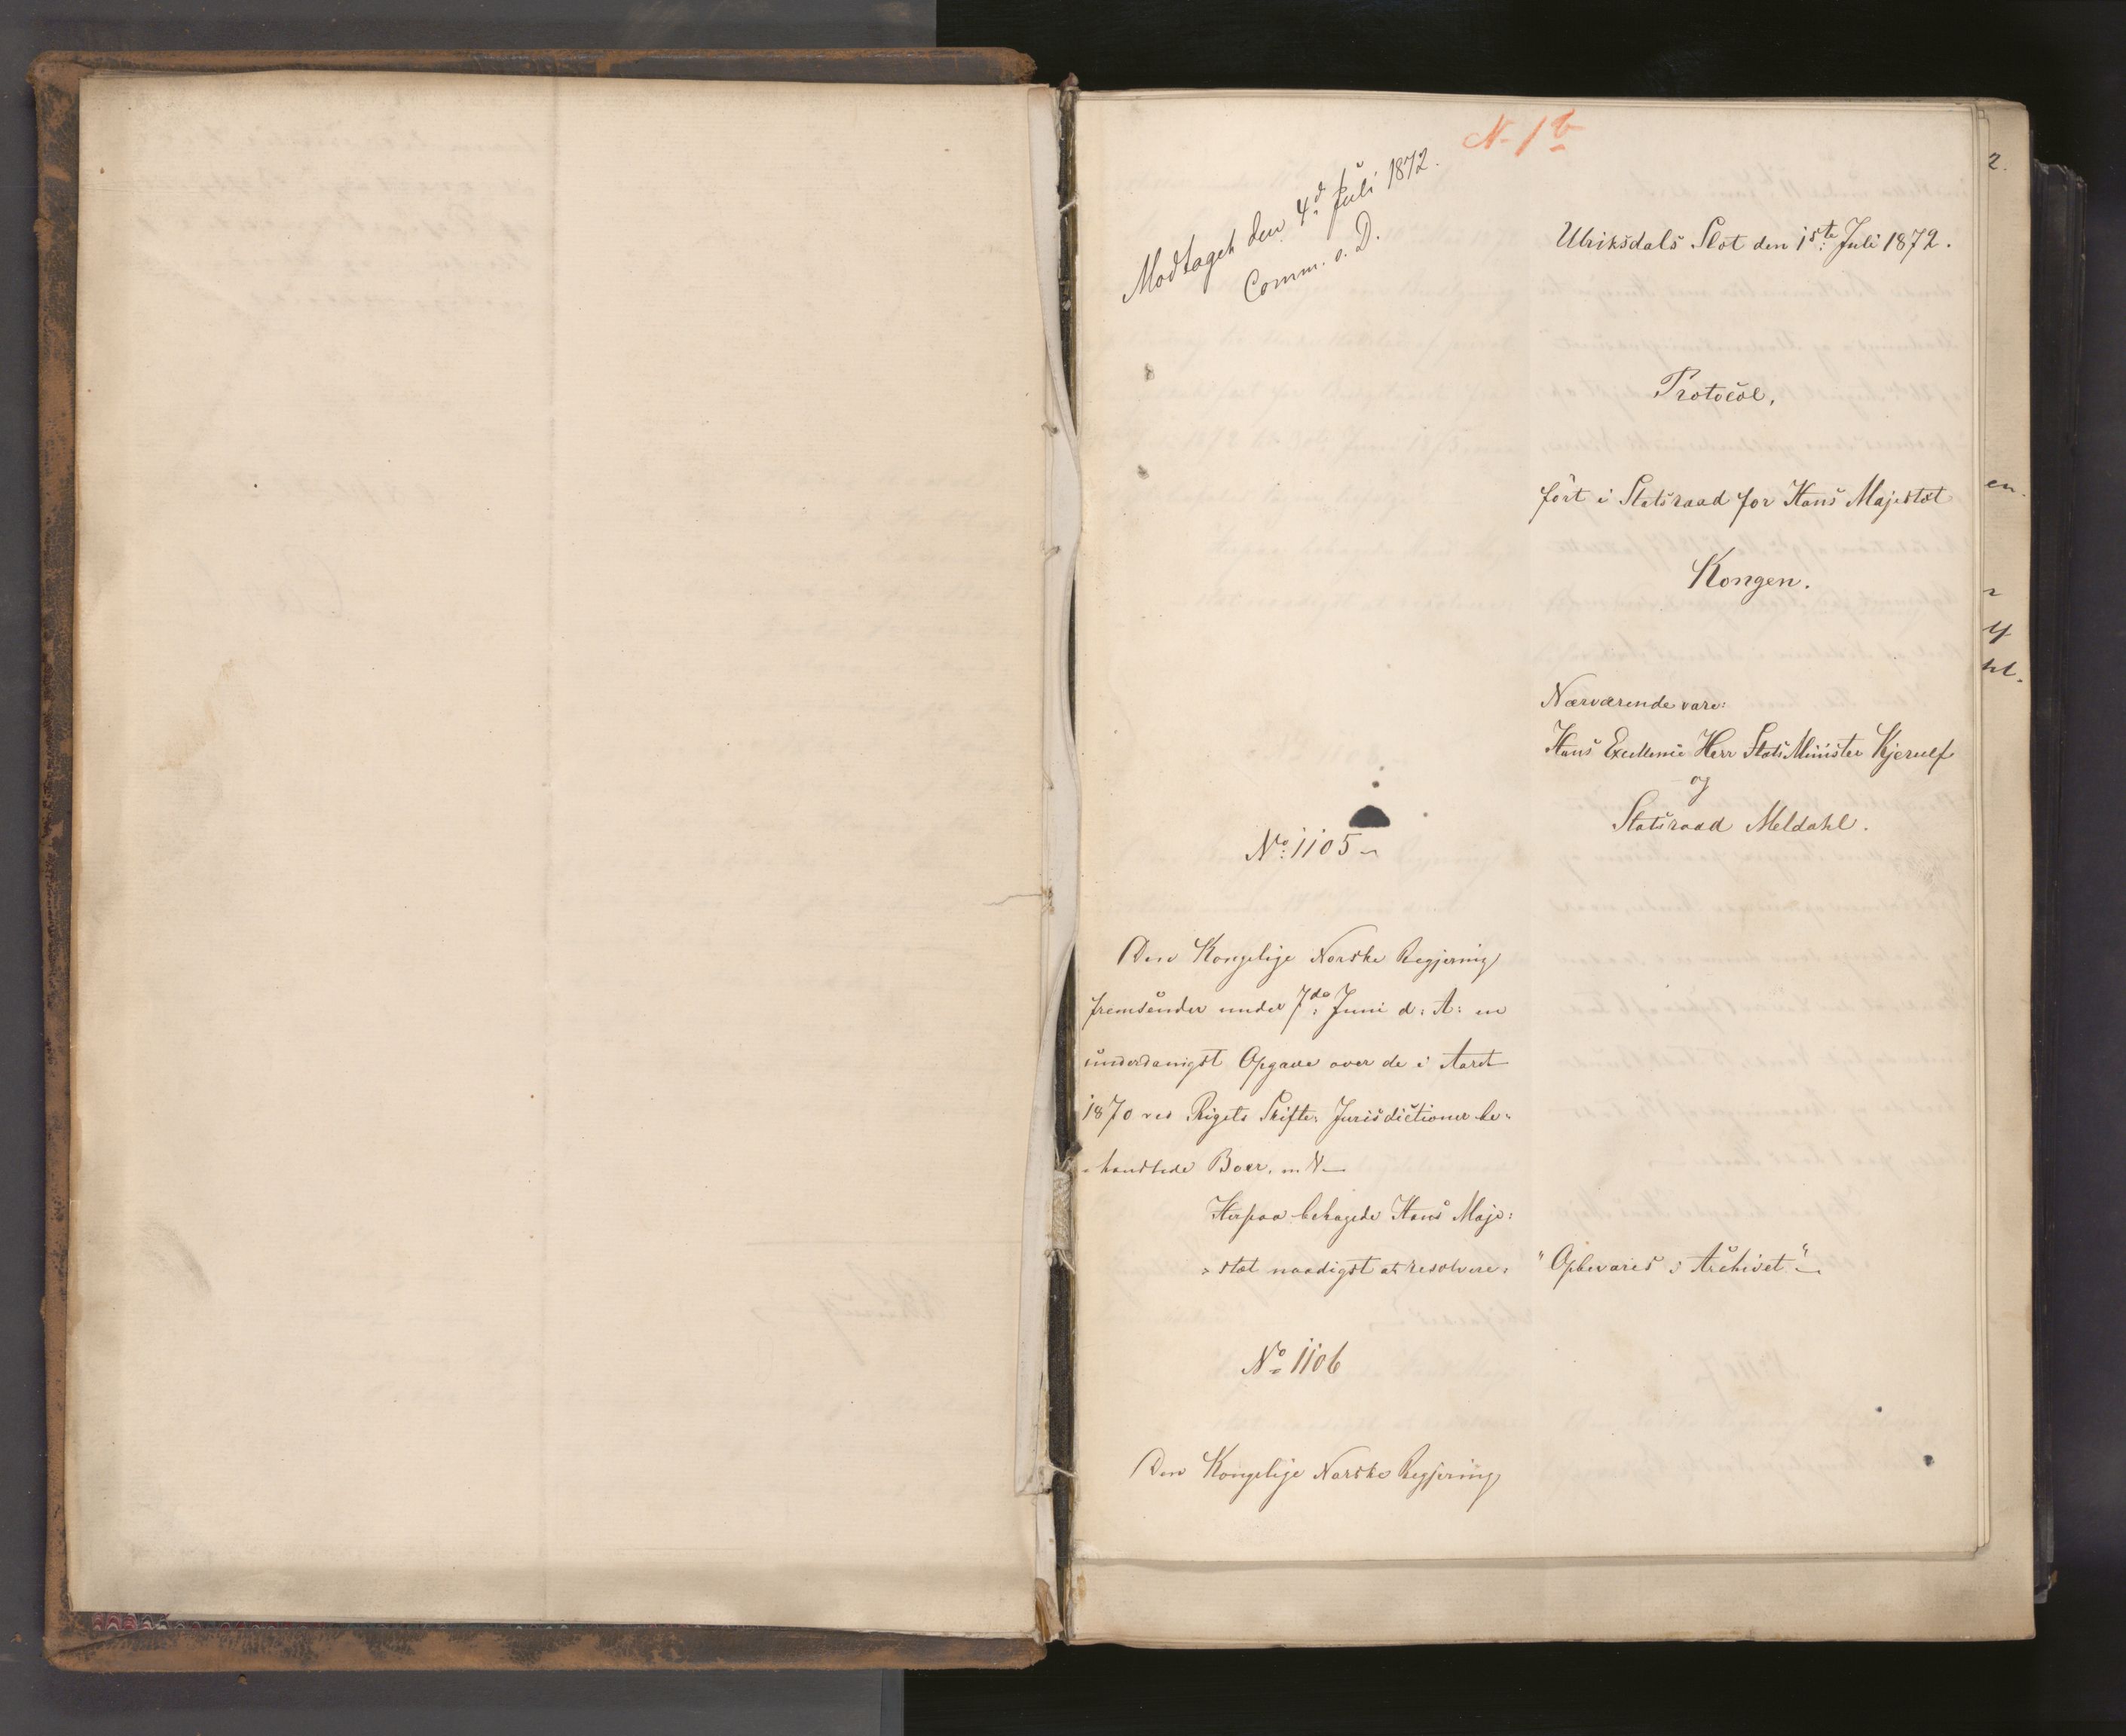 N. 1 b
Modtaget den 4d Juli 1872.
Comm. o. D.
Ulriksdals Slot den 1ste Juli 1872.
Protocol,
ført i Statsraad for Hans Majestæt
Kongen.
Nærværende vare:
Hans Excellence Herr StatsMinister Kjerulf
og
Statsraad Meldahl.
No: 1105
Den Kongelige Norske Regjering
fremsender under 7de Juni d: A: en
underdanigst Opgave over de i Aaret
1870 ved Rigets Skifte-Jurisdictioner be-
-handlede Boer. m. V.
Herpaa behagede Hans Maje-
-stæt naadigst at resolvere:
"Opbevares i Archivet"
No 1106
Den Kongelige Norske Regjering
2.
en.
r